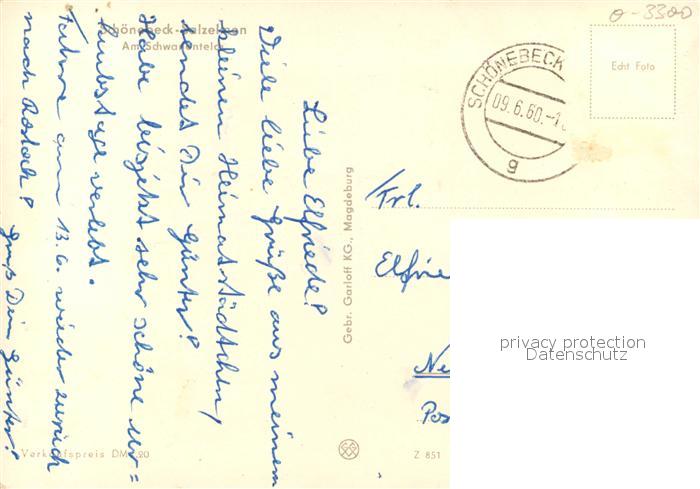 Schönebeck-Salzelmen
Am Schwanenteich
Liebe Elfriede!
Viele liebe Grüße aus meinem
kleinen Heimatstädtchen,
sendet Dir Günter!
Habe bis jetzt sehr schöne Ur=
laubstage verlebt.
Fahre am 13.6. wieder zurück
nach Rostock!
Gruß Dein Günter!
Verkaufspreis DM -.20
Gebr. Garloff KG., Magdeburg
SCHÖNEBECK
09.6.60.-1
g
o-3300
Echt Foto
Frl.
Elfrie
Ne
Pos
privacy protection
Datenschutz
Z 851